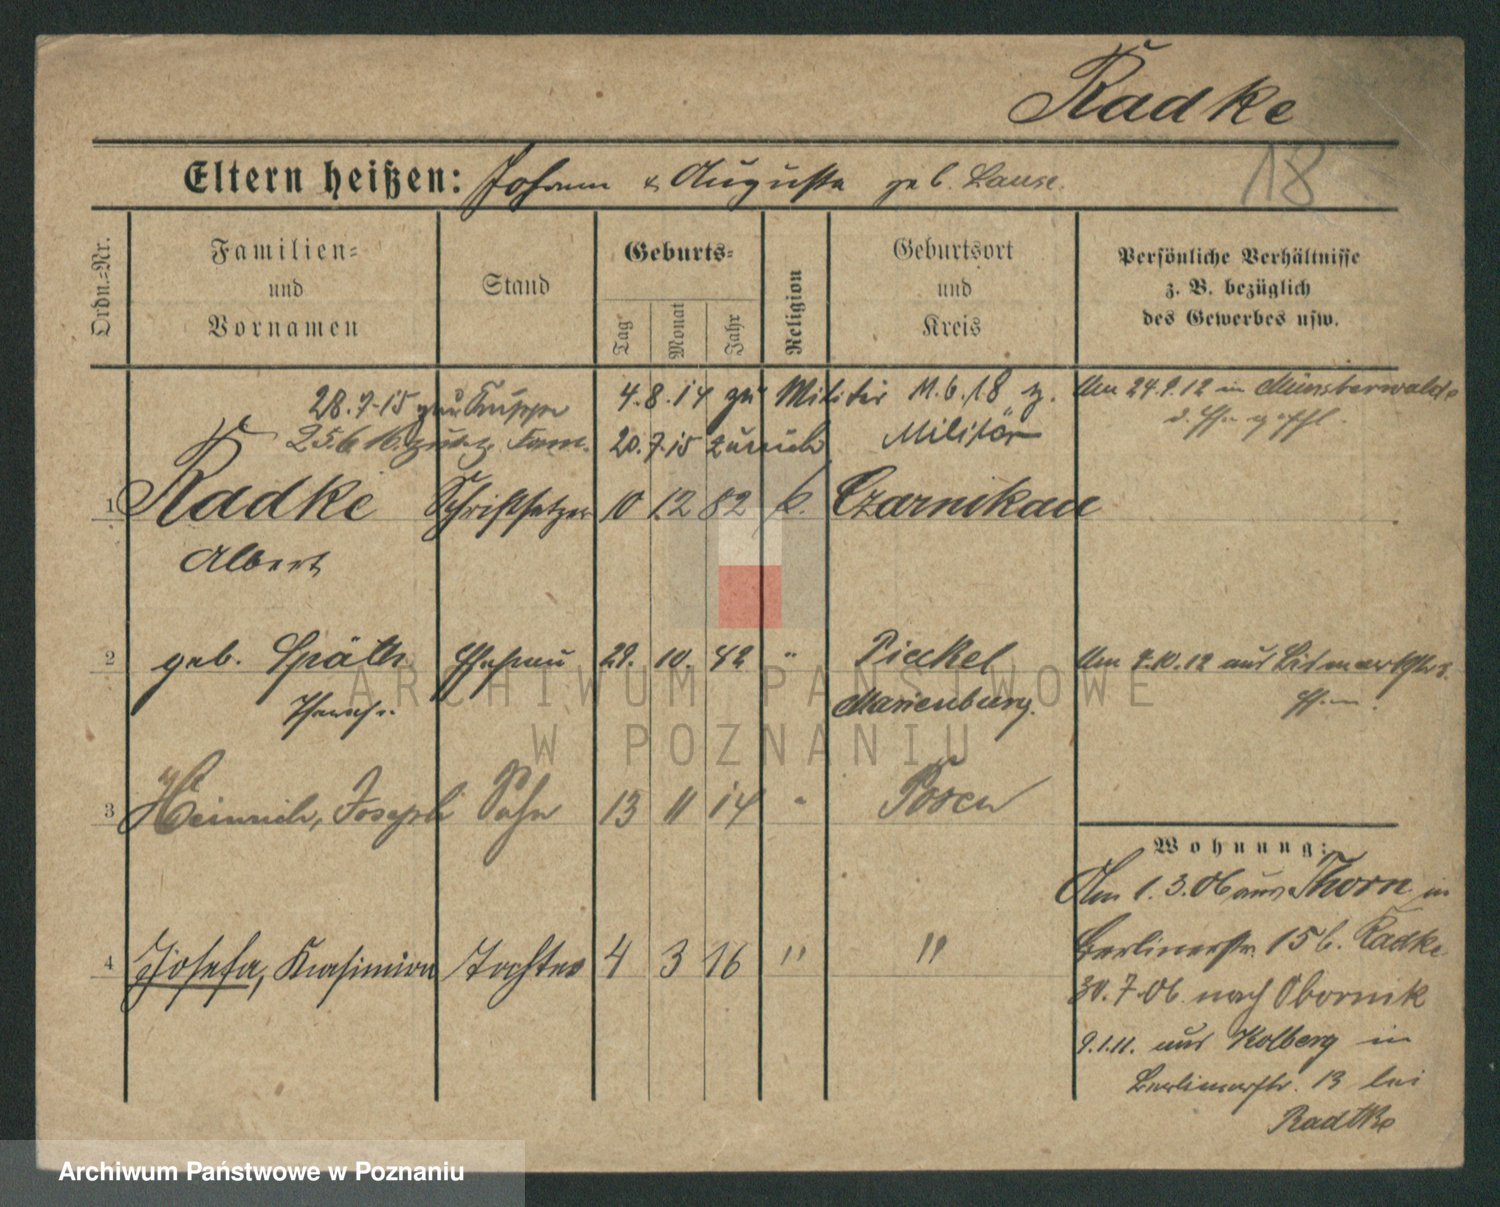 Radke
18
Eltern heißen: Johann & Auguste geb. Lause.
Ordn.=Nr.
Familien=
und
Vornamen
Stand
Geburts=
Tag
Monat
Jahr
Religion
Geburtsort
und
Kreis
Persönliche Verhältnisse
z. B. bezüglich
des Gewerbes usw.
28.9.15 zur Truppe 4.8.14 zu Militär 11.6.18 z. Am 24.9.12 in Münsterwalde
zur 20.7.15 zurück Militär
1 Radke Schriftsetzer 10 12 82 k. Czarnikau
Albert
2 geb. Späth Ehefrau 29. 10. " Pieckel Am 7.10.12 aus Bismarckstr. 3.
Marienburg.
3 Heinrich, Joseph Sohn 13 11 14 " Posen
4 Josefa, Kasimira Tochter 4 3 16 " "
Wohnung:
Am 1.3.06 aus Thorn in
Berlinerstr. 15 b. Radke
30.7.06 nach Obornik
9.1.11. aus Kolberg in
Berlinerstr. 13 bei
Radtke
ARCHIWUM PAŃSTWOWE
W POZNANIU
Archiwum Państwowe w Poznaniu